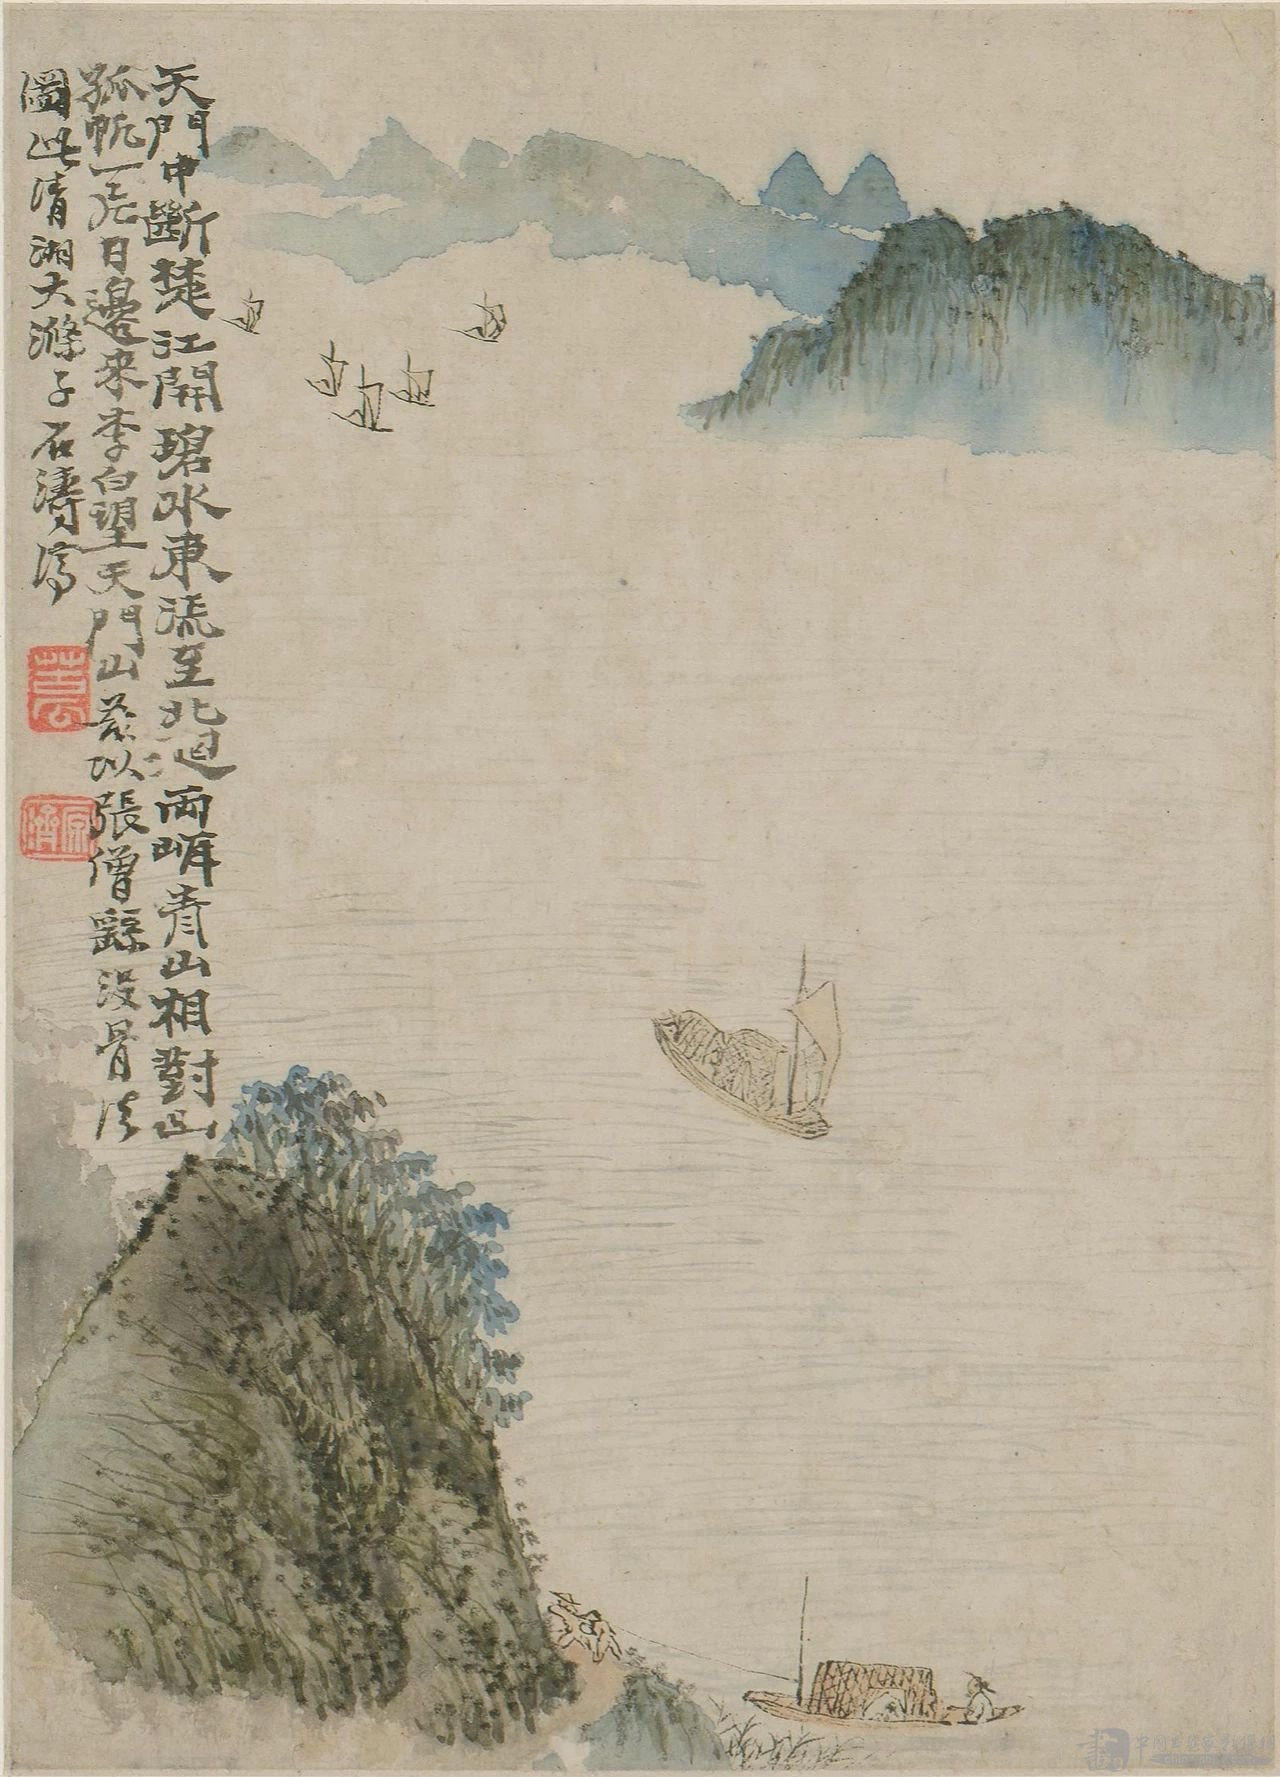 天門中斷楚江開碧水東流至北迴兩崕青山相對出
孤帆一片日邊來李白望天門山茲以張僧繇没骨法
圖此清湘大滌子石濤濟
苦瓜
原濟